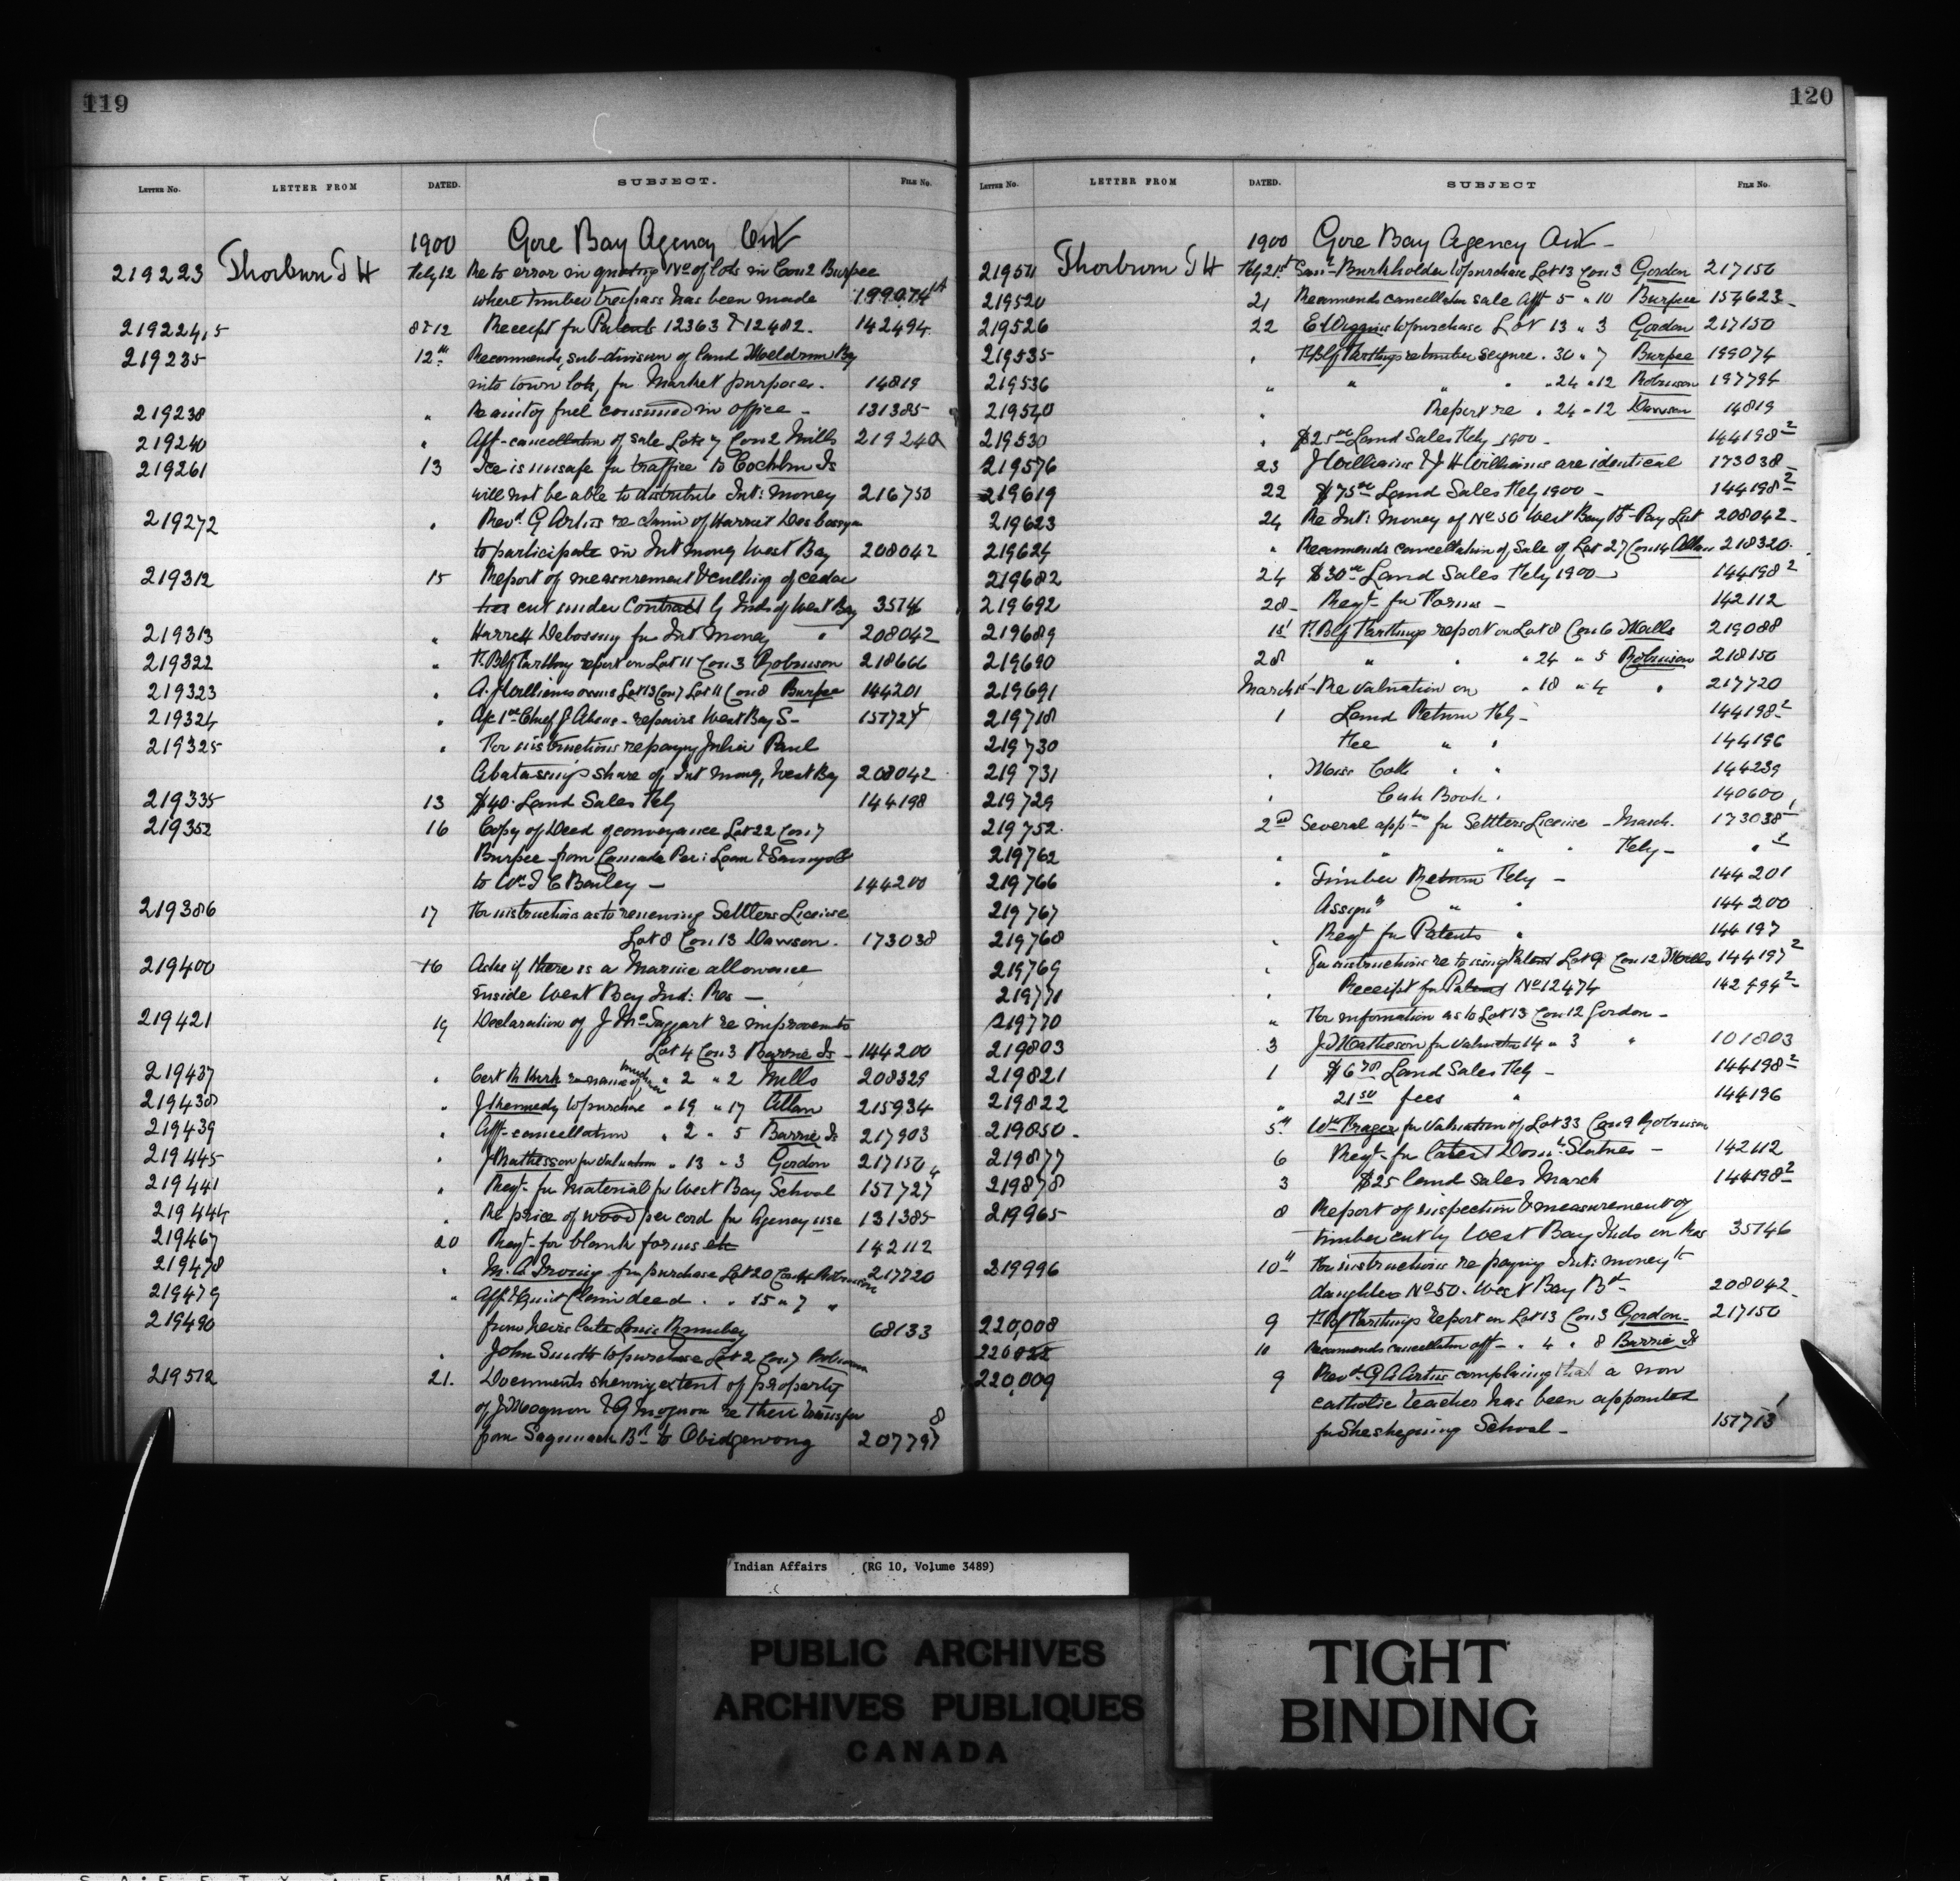 119
LETTER No. LETTER FROM DATED. SUBJECT. FILE No.
1900 Gore Bay Agency Ont
219223 Thorburn J H Feby 12 Re to error in quoting No of lots in Con 2 Burpee
where timber trespass has been made 199074
219224,5 8 & 12 Receipt for Patents 12363 & 12482. 142494
219235 12th Recommends sub-division of land Meldrum Bay
into town lots, for Market purposes. 14819
219238 " Re amt of fuel consumed in office - 131385
219240 " Aff - cancellation of sale Lot 7 Con 2 Mills 219240
219261 13 Ice is unsafe for traffic to Cockburn Is
will not be able to distribute Int: money 216750
219272 " Revd G Artus re claim of Harriet
to participate in Int money West Bay 208042
219312 15 Report of measurement & culling of cedar
ties cut under Contract by Inds of West Bay 35746
219313 " Harriett Debossny for Int Money " 208042
219322 " report on Lot 11 Con 3 Robinson 218666
219323 " A. J Williams Lot 13 Con 7 Lot 11 Con 8 Burpee 144201
219324 " Chief J. - repairs West Bay S- 157727
219325 " For instructions re paying Julia Paul
share of Int money, West Bay 208042
219335 13 $40. Land Sales Feby 144198
219352 16 Copy of Deed of conveyance Lot 22 Con 7
Burpee from Canada Per: Loan & Savings Co
to Wm J C Benley - 144200
219386 17 For instructions as to renewing Settlers License
Lot 8 Con 13 Dawson. 173038
219400 16 Asks if there is a Marine allowance
inside West Bay Ind: Res -
219421 19 Declaration of J McTaggart re improvements
Lot 4 Con 3 Barrie Is - 144200
219437 " Cert " 2 " 2 Mills 208329
219438 " J Kennedy to purchase " 19 " 17 Allan 215934
219439 " Aff - cancellation " 2 " 5 Barrie Is 217903
219445 " J Mathesson for valuation " 13 " 3 Gordon 217150
219441 " Reqt - for Material for West Bay School 157727
219444 " Re price of wood per cord for Agency use 131385
219467 20 Reqt - for blank forms etc 142112
219478 " M. A. Irving for purchase Lot 20 Con 4 Robinson 217720
219479 " Aff & Quit Claim deed " " 15 " 7 "
219490 from heirs late Louis 68133
" John Smith to purchase Lot 2 Con 7 Robinson
219512 21. Documents shewing extent of property
of J & G Mognon re their transfer
from Sagamack Bd to Obidgewong 207797 8
120
LETTER No. LETTER FROM DATED. SUBJECT FILE No.
1900 Gore Bay Agency Ont -
219511 Thorburn J H Feby 21st Saml Burkholder to purchase Lot 13 Con 3 Gordon 217150
219520 21 Recommends cancellation sale Aff 5 " 10 Burpee 154623
219526 22 E Wiggins to purchase Lot 13 " 3 Gordon 217150
219535 " re timber seizure . 30 " 7 Burpee 199074
219536 " " " " " 24 " 12 Robinson 197794
219540 " Report re " 24 " 12 Dawson 14819
219530 " $25 00 Land Sales Feby 1900 - 144198 2
219576 23 J Williams & J H Williams are identical 173038
219619 22 $75 00 Land Sales Feby 1900 - 144198 2
219623 24 Re Int: Money of No 50 West Bay Bd - Pay List 208042
219624 " Recommends cancellation of Sale of Lot 27 Con 14 Allan 218320
219682 24 $30 00 Land Sales Feby 1900 - 144198 2
219692 28 Reqt - for Forms - 142112
219689 1st report on Lot 8 Con 6 Mills 219088
219690 28 " " " 24 " 5 Robinson 218150
219691 March 1st - Re valuation on " 18 " 4 " 217720
219718 1 Land Return Feby - 144198 2
219730 Fee " " 144196
219731 " Coll " " 144239
219729 " Cash Book " 140600
219752. 2nd Several appns for Settlers License - March. 173038 1
219762 " " " " Feby - " 1
219766 " Timber Return Feby - 144201
219767 Assignts " " 144200
219768 " Reqt for Patents " 144197
219769 " For instructions re to issuing Patent Lot 9 Con 12 Mills 144197 2
219771 " Receipt for Patent No 12474 142494 2
219770 " For information as to Lot 13 Con 12 Gordon -
219803 3 J Matheson for valuation 14 " 3 " 101803
219821 1 $6 70 Land Sales Feby - 144198 2
219822 " 21 50 fees " 144196
219850 5th Wm Prager for valuation of Lot 33 Con 9 Robinson
219877 6 Reqt - for latest Domn Statutes - 142112
219878 3 $25 land sales March 144198 2
219965 8 Report of inspection & measurement of
timber cut by West Bay Inds on Res 35746
219996 10th For instructions re paying Int: money to
daughter No 50. West Bay Bd 208042
220,008 9 report on Lot 13 Con 3 Gordon - 217150
220022 10 Recommends cancellation aff - " 4 " 8 Barrie Is
220,009 9 Revd G A Artus complaining that a non
catholic teacher has been appointed
for Sheshegwaning School - 157713 1
Indian Affairs (RG 10, Volume 3489)
PUBLIC ARCHIVES
ARCHIVES PUBLIQUES
CANADA
TIGHT
BINDING